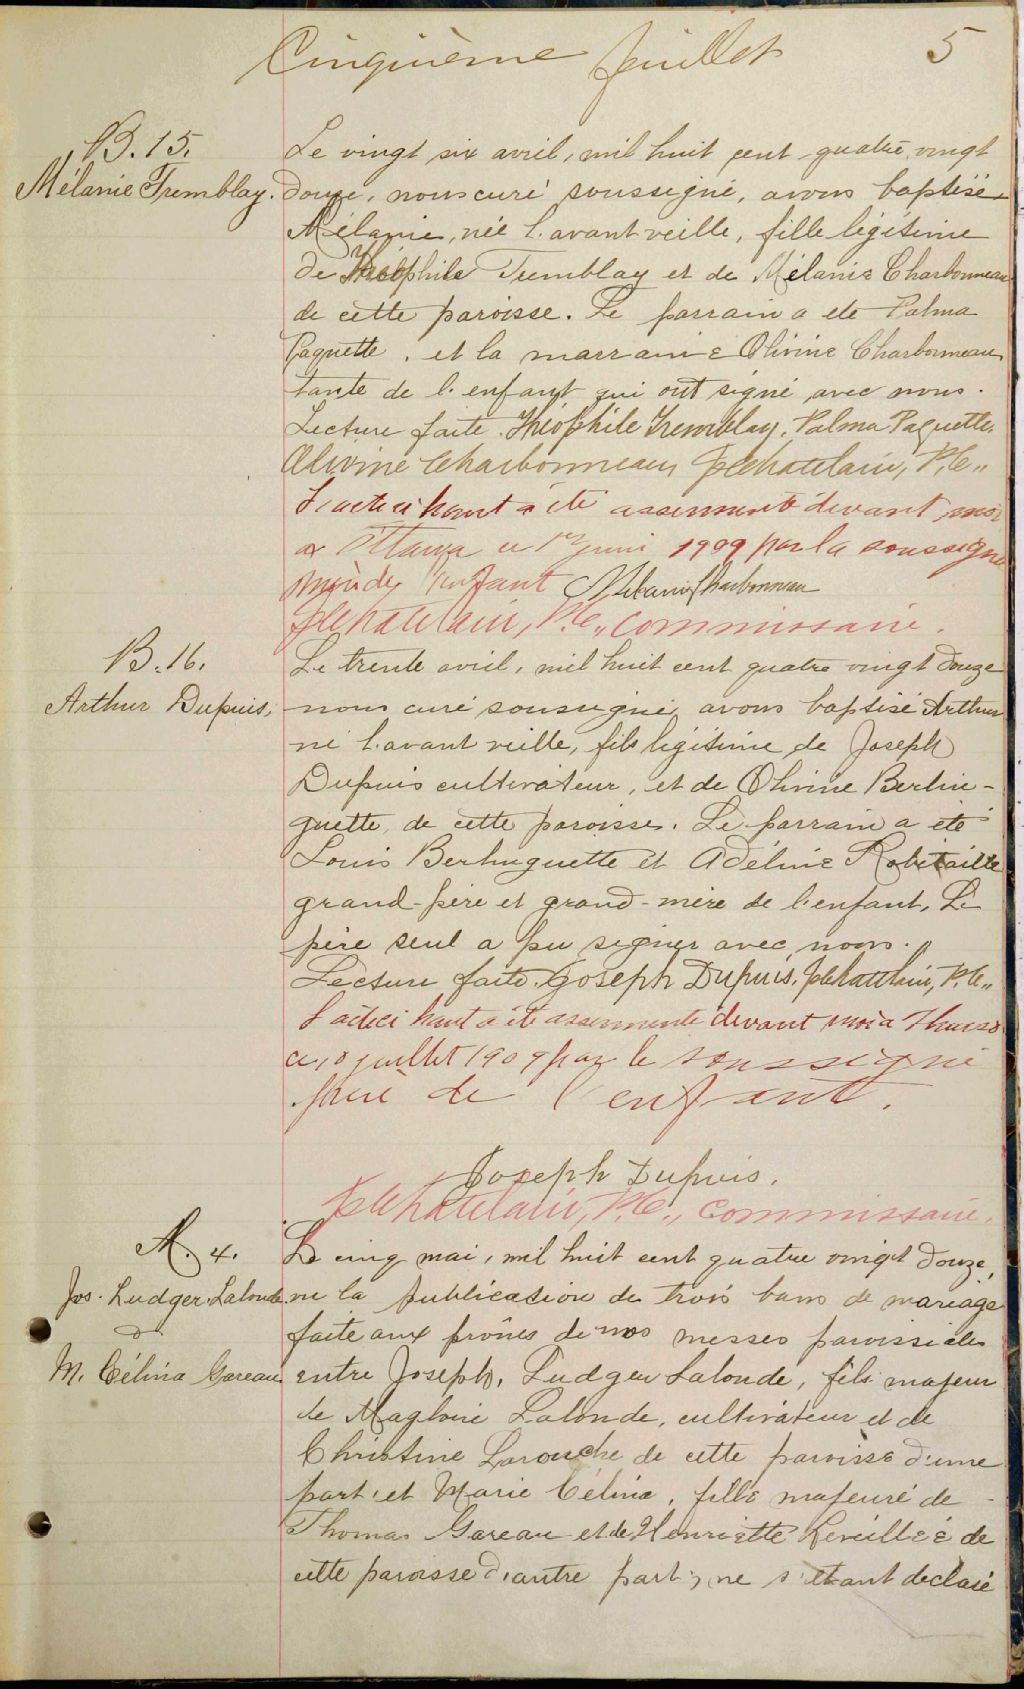 Cinquième feuillet 5
B. 15.
Mélanie Tremblay.
Le vingt six avril, mil huit cent quatre vingt
douze, nous curé soussigné, avons baptisé
Mélanie, née l'avant veille, fille légitime
de Théophile Tremblay et de Mélanie Charbonneau
de cette paroisse. Le parrain a ete Palma
Paquette, et la marraine Olivine Charbonneau
tante de l'enfant qui ont signé avec nous.
Lecture faite. Théophile Tremblay. Palma Paquette.
Olivine Charbonneau, Chatelain, P.C.,,
L'acte ci haut a été assermenté devant moi
a Ottawa ce 1er juin 1909 par la soussignée
mère de l'enfant Mélanie Charbonneau
Chatelain, P.C.,, commissaire.
B. 16.
Arthur Dupuis,
Le trente avril, mil huit cent quatre vingt douze
nous curé soussigné, avons baptisé Arthur
né l'avant veille, fils légitime de Joseph
Dupuis cultivateur, et de Olivine Berlin-
guette, de cette paroisse. Le parrain a été
Louis Berlinguette et Adéline Robitaille
grand-père et grand-mère de l'enfant, Le
père seul a pu signer avec nous.
Lecture faite. Joseph Dupuis. Chatelain, P.C.,,
L'acte ci haut a été assermenté devant moi a Thurso
ce 10 juillet 1909 par le soussigné
père de l'enfant.
Joseph Dupuis.
Chatelain, P.C.,, commissaire.
M. 4.
Jos. Ludger Lalonde
&
M. Célina Gareau
Le cinq mai, mil huit cent quatre vingt douze,
vu la publication de trois bans de mariage
faite aux prônes de nos messes paroissiales
entre Joseph, Ludger Lalonde, fils majeur
de Magloire Lalonde, cultivateur et de
Christine Larouche de cette paroisse d'une
part, et Marie Célina, fille majeure de
Thomas Gareau et de Henriette Léveillée de
cette paroisse d'autre part; ne s'étant declaré